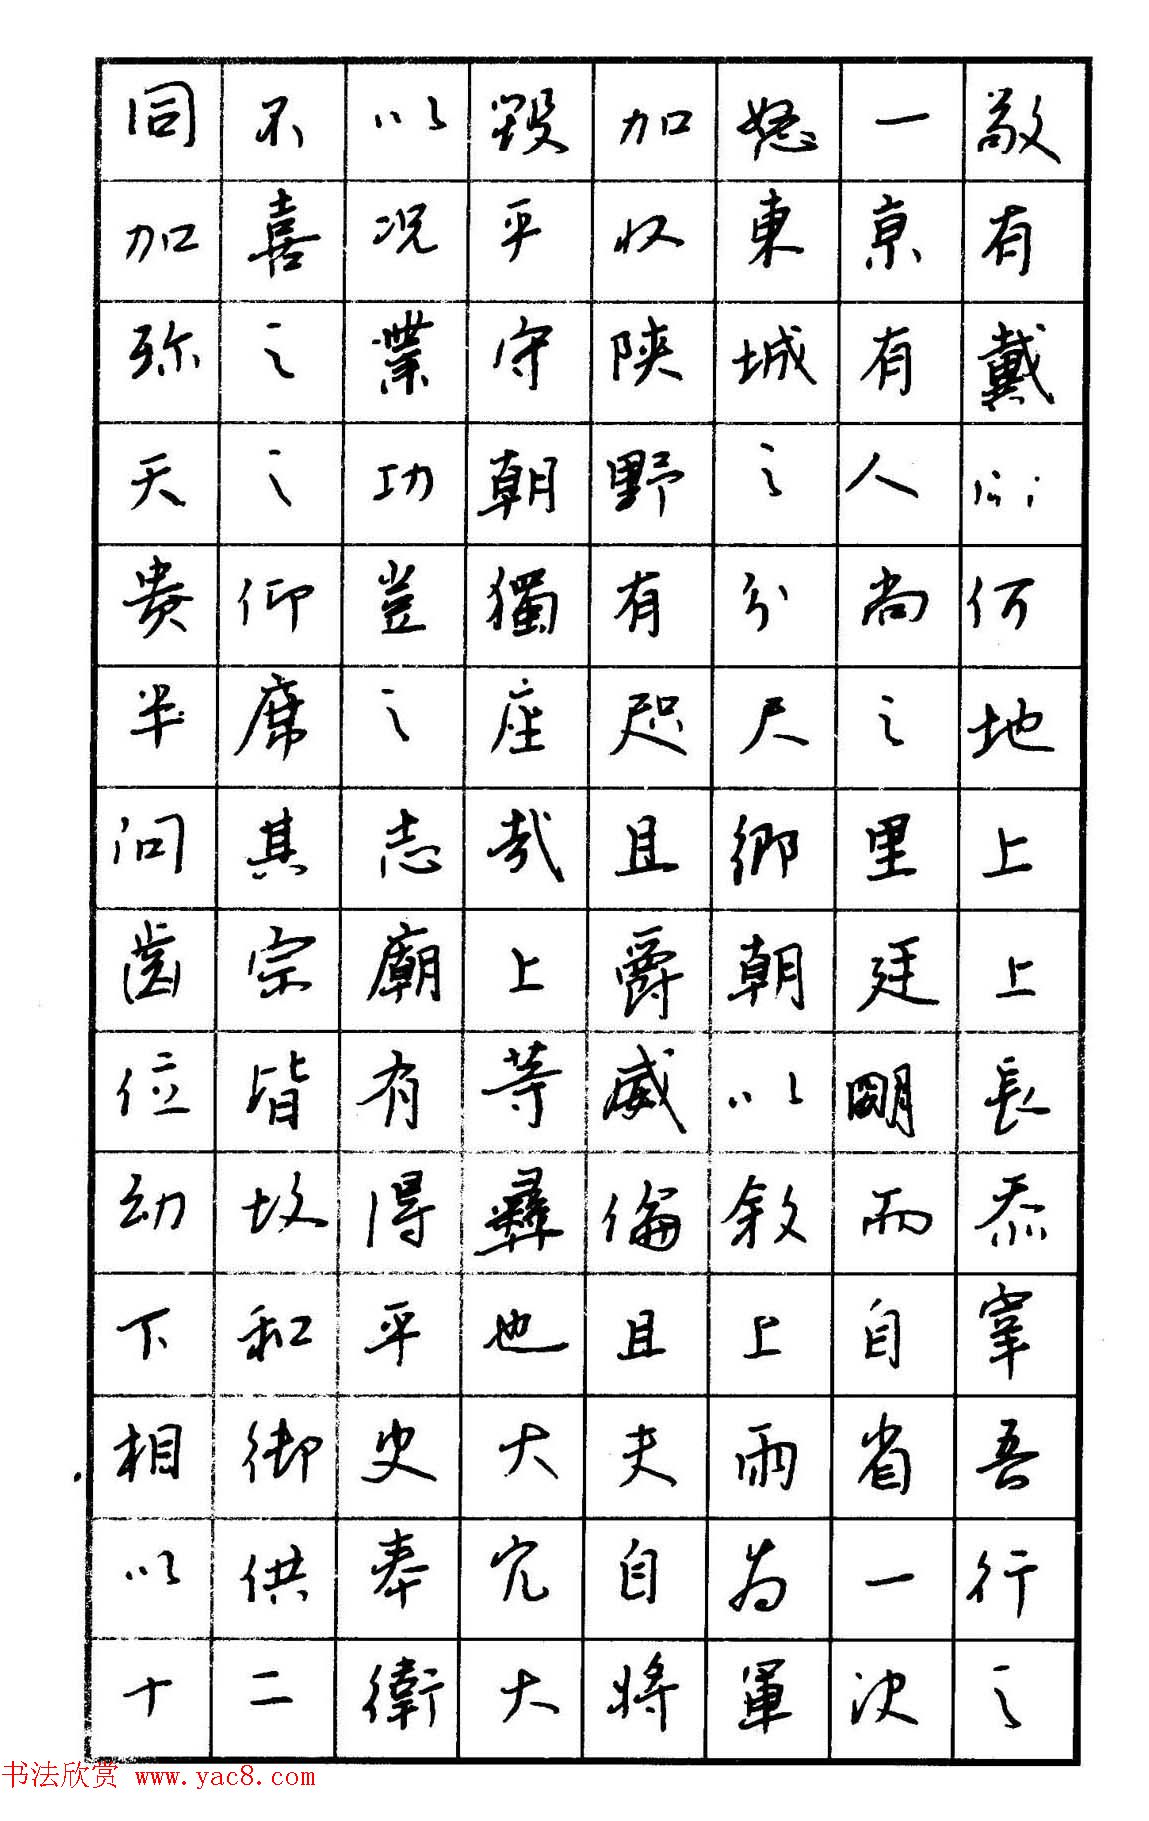 同不以毀加怒一敢
加喜況平收東京有
弥之業守陝城有戴
天之功朝野之人心
貴仰豈獨有分尚何
半席之座咫尺之地
問其志哉且鄉里上
齒宗廟上爵朝廷上
位皆有等威以明長
幼故得彝倫敘而忝
下和平也且上自宰
相御史大夫兩省吾
以供奉冗自為一行
十二衛大將軍次之
书法欣赏 www.yac8.com